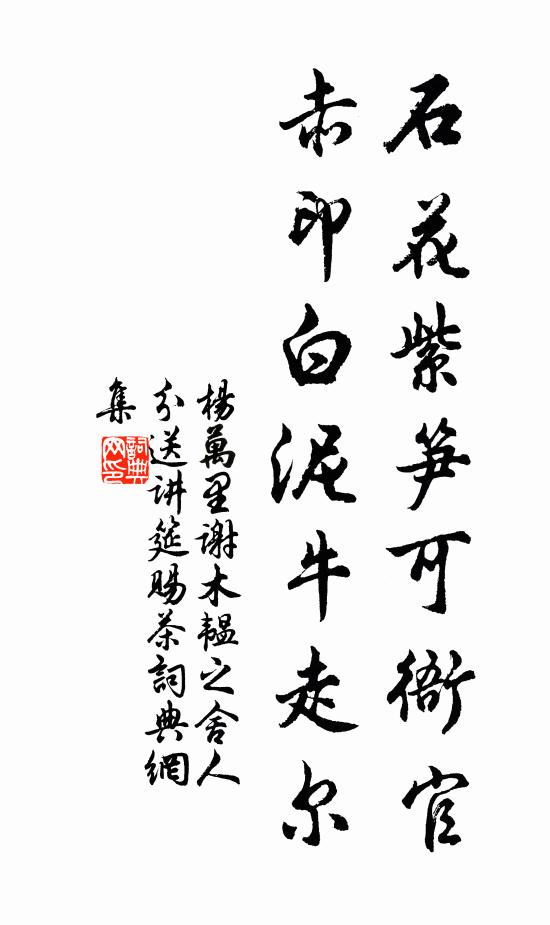 石花紫笋可衙官
赤印白泥牛走尔
楊萬里谢木韞之舍人
分送讲筵賜茶詞典網
集
詞典
网印